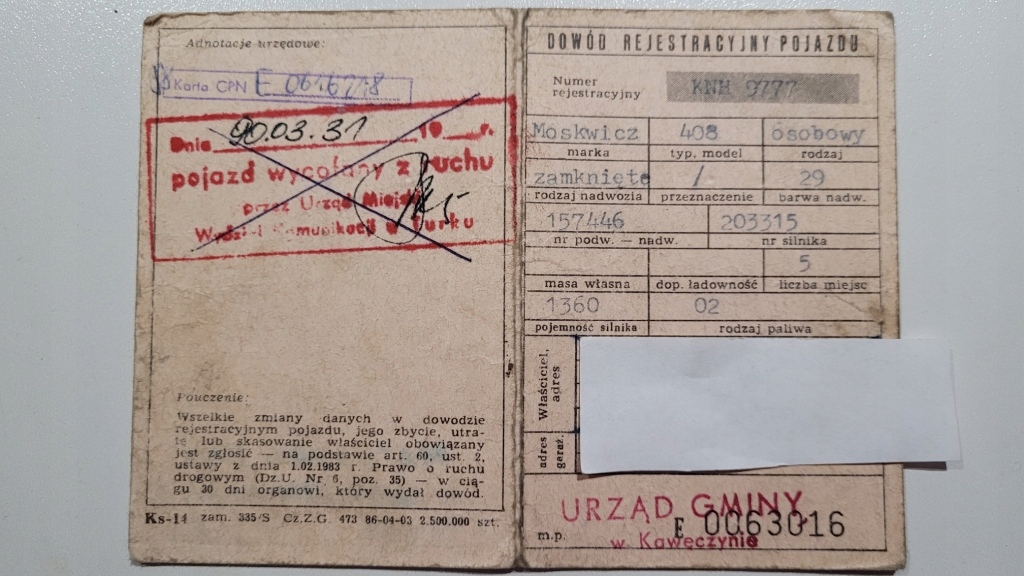 Adnotacje urzędowe:
Karta CPN E 0616718
Dnia 90.03.31 19__ r.
pojazd wycofany z ruchu
przez Urząd Miejski
Wydział Komunikacji w Turku
Pouczenie:
Wszelkie zmiany danych w dowodzie
rejestracyjnym pojazdu, jego zbycie, utra-
tę lub skasowanie właściciel obowiązany
jest zgłosić — na podstawie art. 60, ust. 2,
ustawy z dnia 1.02.1983 r. Prawo o ruchu
drogowym (Dz.U. Nr 6, poz. 35) — w cią-
gu 30 dni organowi, który wydał dowód.
Ks-14 zam. 335/S Cz.Z.G. 473 86-04-03 2.500.000 szt.
DOWÓD REJESTRACYJNY POJAZDU
Numer
rejestracyjny
KNH 9777
Moskwicz 408 osobowy
marka typ, model rodzaj
zamknięte / 29
rodzaj nadwozia przeznaczenie barwa nadw.
157446 203315
nr podw. — nadw. nr silnika
5
masa własna dop. ładowność liczba miejsc
1360 02
pojemność silnika rodzaj paliwa
Właściciel,
adres
adres
garaż.
URZĄD GMINY
w Kawęczynie
m.p.
E 0063016